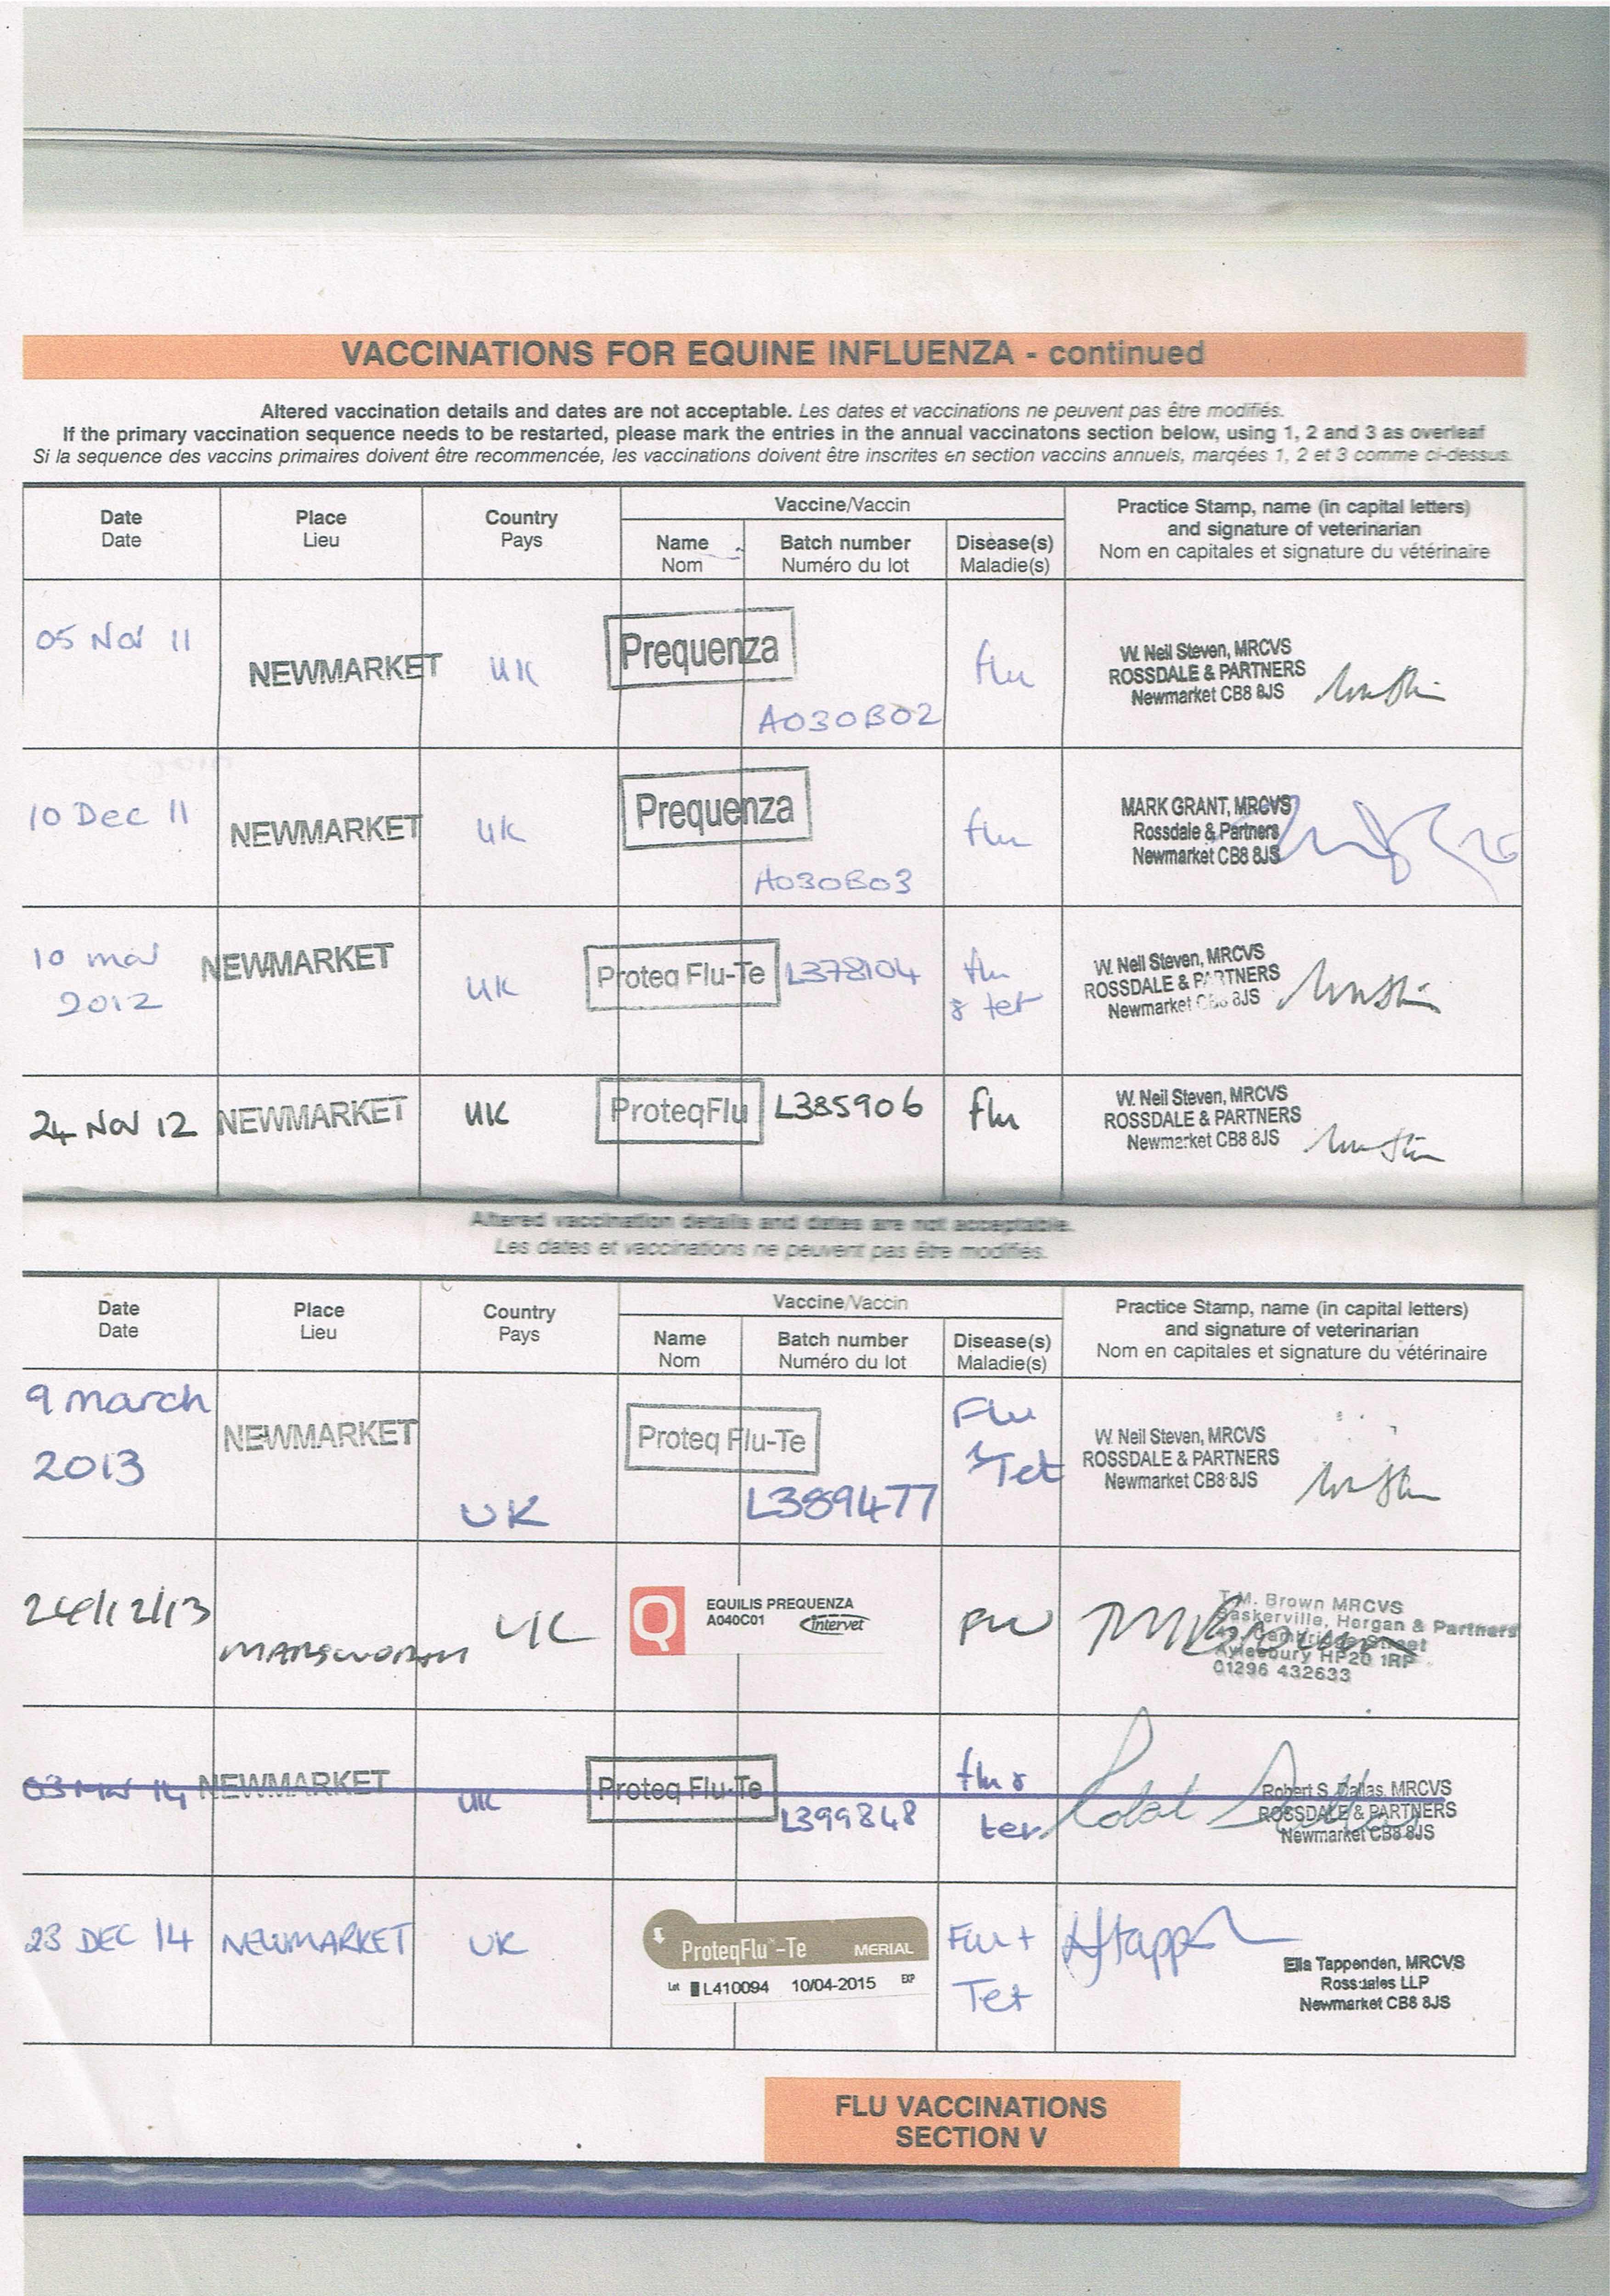 VACCINATIONS FOR EQUINE INFLUENZA - continued
Altered vaccination details and dates are not acceptable. Les dates et vaccinations ne peuvent pas être modifiés.
If the primary vaccination sequence needs to be restarted, please mark the entries in the annual vaccinatons section below, using 1, 2 and 3 as overleaf
Si la sequence des vaccins primaires doivent être recommencée, les vaccinations doivent être inscrites en section vaccins annuels, marqées 1, 2 et 3 comme ci-dessus.
Date
Date
Place
Lieu
Country
Pays
Vaccine/Vaccin
Name
Nom
Batch number
Numéro du lot
Disease(s)
Maladie(s)
Practice Stamp, name (in capital letters)
and signature of veterinarian
Nom en capitales et signature du vétérinaire
05 Nov 11
NEWMARKET
UK
Prequenza
A030B02
flu
W. Neil Steven, MRCVS
ROSSDALE & PARTNERS
Newmarket CB8 8JS
10 Dec 11
NEWMARKET
UK
Prequenza
A030B03
flu
MARK GRANT, MRCVS
Rossdale & Partners
Newmarket CB8 8JS
10 mar
2012
NEWMARKET
UK
Proteq Flu-Te
L378104
flu
& tet
W. Neil Steven, MRCVS
ROSSDALE & PARTNERS
Newmarket CB8 8JS
24 Nov 12
NEWMARKET
UK
ProteqFlu
L385906
flu
W. Neil Steven, MRCVS
ROSSDALE & PARTNERS
Newmarket CB8 8JS
Altered vaccination details and dates are not acceptable.
Les dates et vaccinations ne peuvent pas être modifiés.
Date
Date
Place
Lieu
Country
Pays
Vaccine/Vaccin
Name
Nom
Batch number
Numéro du lot
Disease(s)
Maladie(s)
Practice Stamp, name (in capital letters)
and signature of veterinarian
Nom en capitales et signature du vétérinaire
9 March
2013
NEWMARKET
UK
Proteq Flu-Te
L389477
Flu
& Tet
W. Neil Steven, MRCVS
ROSSDALE & PARTNERS
Newmarket CB8 8JS
MARSWORTH
UK
Q
EQUILIS PREQUENZA
A040C01
Intervet
FLU
T.M. Brown MRCVS
Baskerville, Horgan & Partners
Cambridge Street
Aylesbury HP20 1RP
01296 432633
03 Mar 14
NEWMARKET
UK
Proteq Flu-Te
L399848
flu &
tet
Robert S. Dallas, MRCVS
ROSSDALE & PARTNERS
Newmarket CB8 8JS
23 DEC 14
NEWMARKET
UK
ProteqFlu™-Te MERIAL
Lot L410094 10/04-2015 EXP
Flu +
Tet
Ella Tappenden, MRCVS
Rossdales LLP
Newmarket CB8 8JS
FLU VACCINATIONS
SECTION V